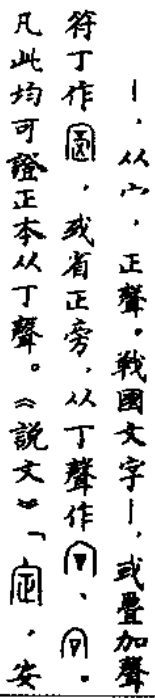 ｜，从宀，正聲。戰國文字｜，或疊加聲
符丁作，或省正旁，从丁聲作、。
凡此均可證正本从丁聲。《說文》「，安